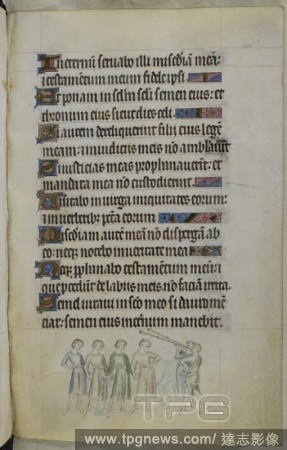 In eternū seruabo illi mīscdiā meā:
⁊ testamētum meum fidele ipsi.
Et ponam in sclm scli semen eius: et
thronum eius sicut dies celi.
Si autem dereliquerint filii eius legē
meam: ⁊ in iudiciis meis nō ambulauīt
Si iusticias meas prophanauerīt: et
mandata mea nō custodierint.
Uisitabo in uirga iniquitates eorum:
⁊ in uerberibꝫ pccā eorum
Misc̄diam autē meā nō dispergā ab
eo: neqꝫ nocebo in ueritate mea
Neqꝫ ꝓphanabo testamentum meū: ⁊
que ꝓcedūt de labiis meis nō faciā irrita.
Semel iuraui in sc̄o meo si dauid mē
tiar: semen eius in et̄num manebit.
TPG
www.tpgnews.com/ 達志影像